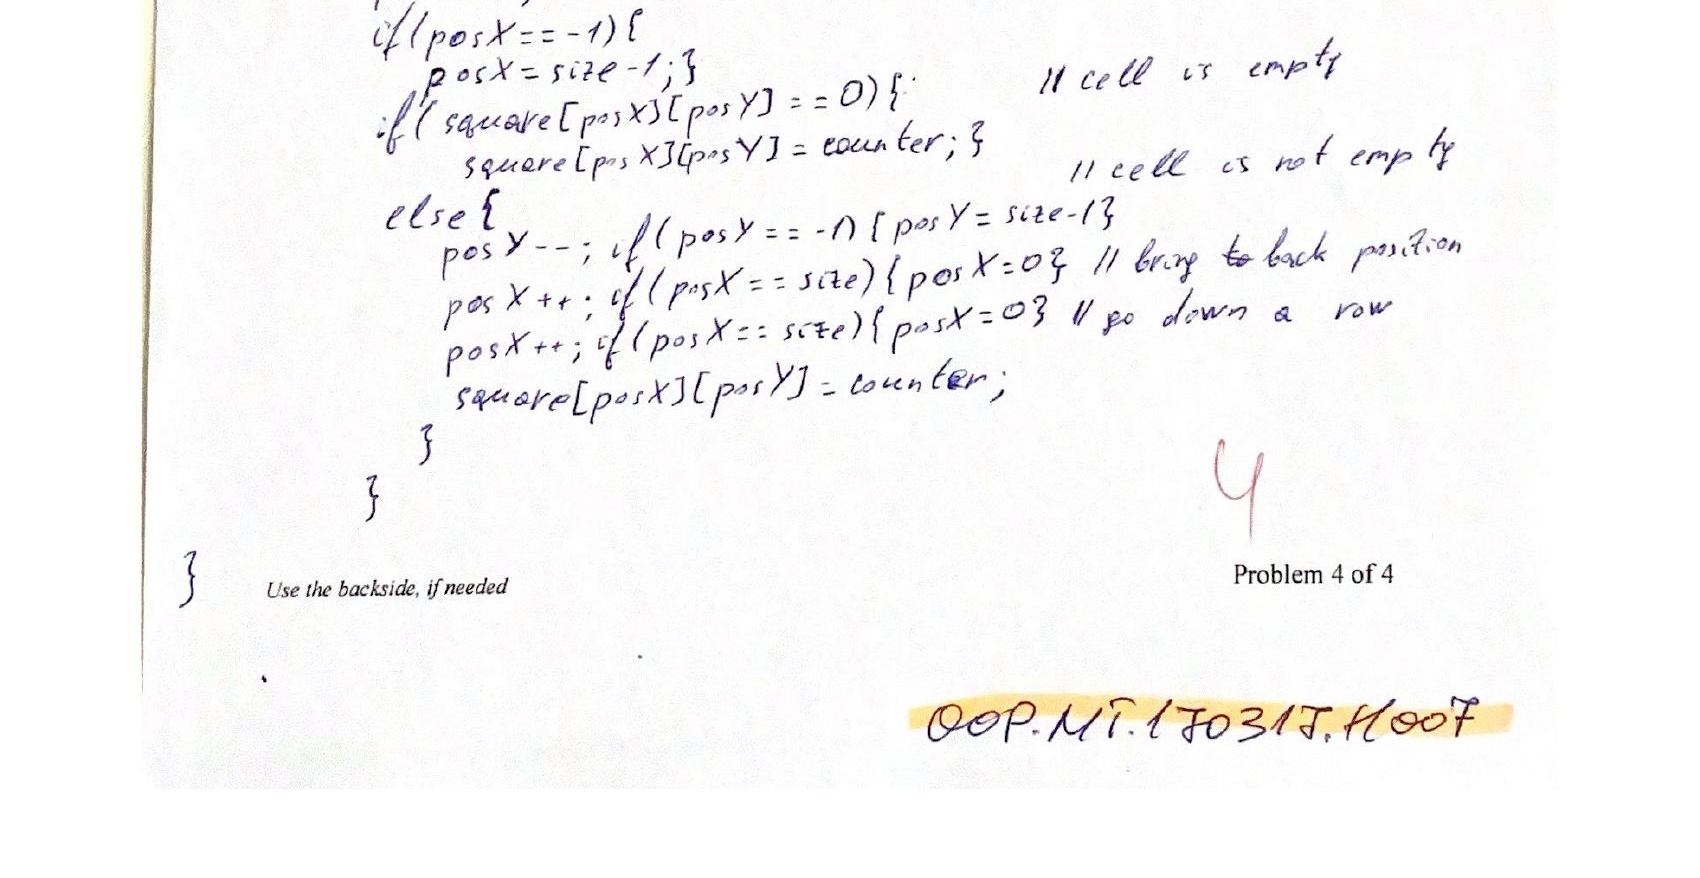 if(posX==-1){
posX=size-1;}
if(square[posX][posY]==0){ // cell is empty
square[posX][posY]=counter;}
else{ // cell is not empty
posY--; if(posY==-1){posY=size-1}
posX++; if(posX==size){posX=0} // bring back position
posX++; if(posX==size){posX=0} // go down a row
square[posX][posY]=counter;
}
}
4
}
Use the backside, if needed
Problem 4 of 4
OOP.MT.170317.H007